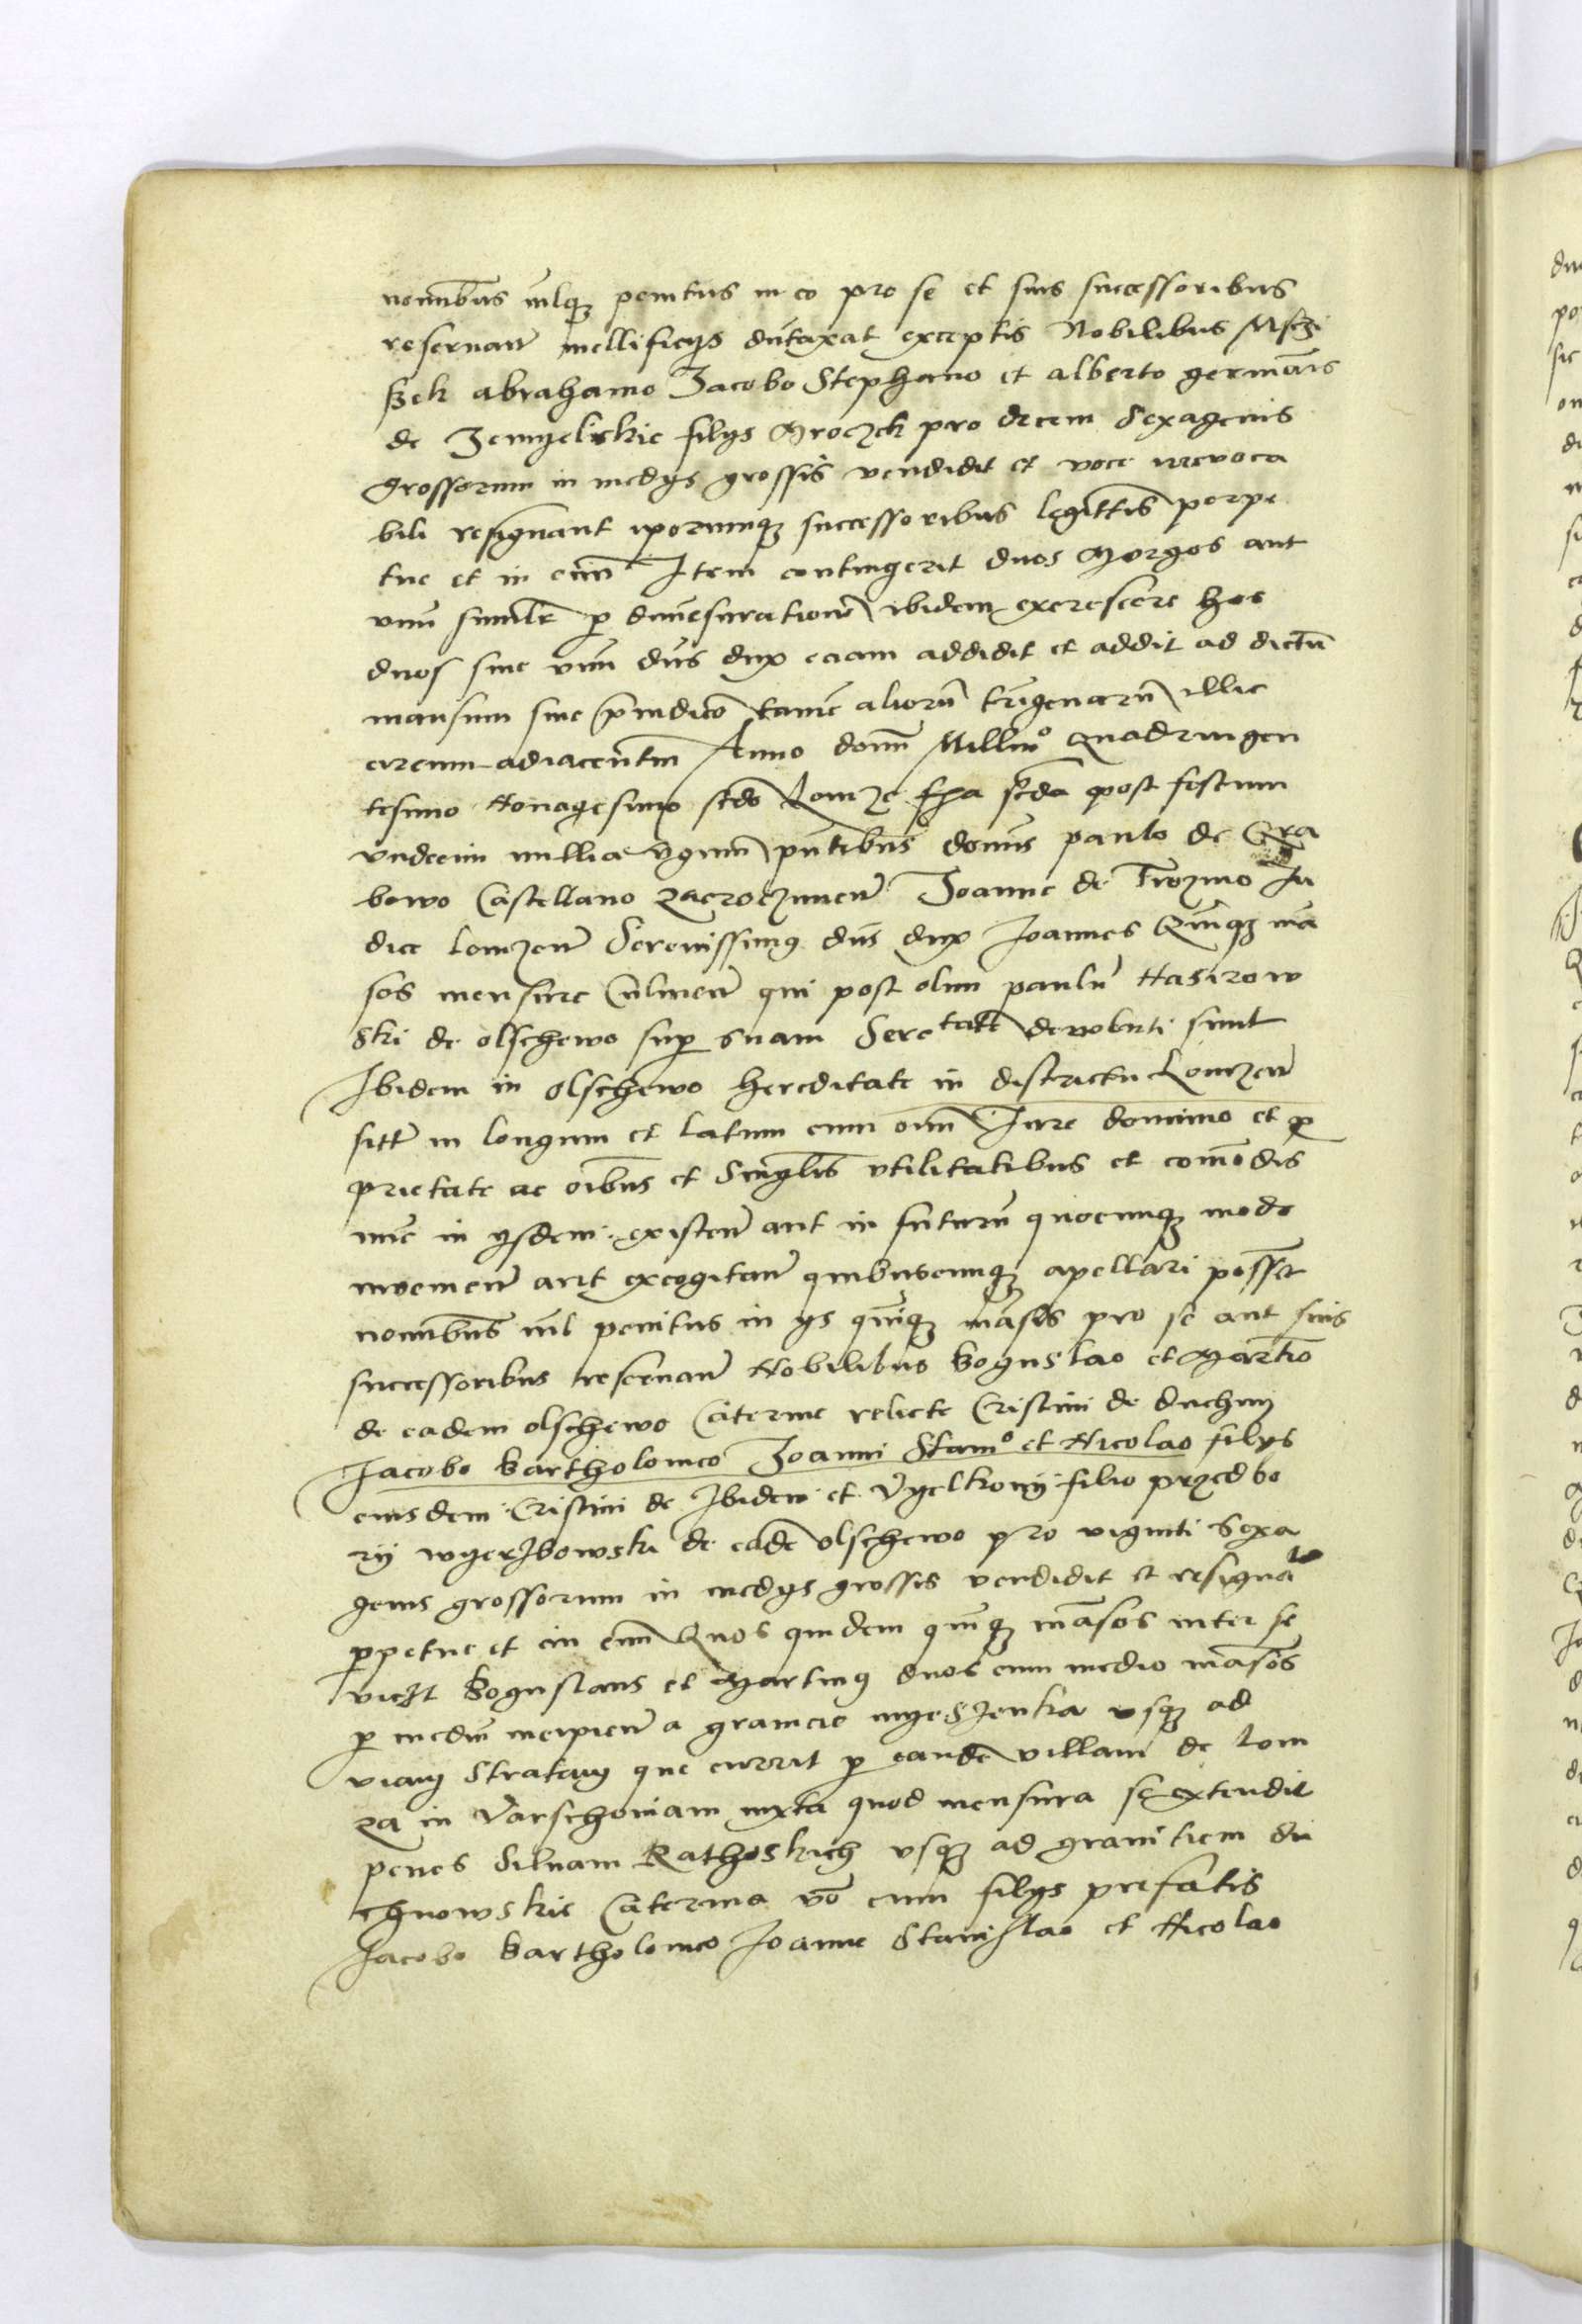 nominibus nilq; penitus in eo pro se et suis successoribus
reservan mellificijs duntaxat exceptis Nobilibus Msczi
szek abrahamo Jacobo Stephano et alberto germanis
de Zemyeliskie filijs Mroczek pro decem Sexagenis
grossorum in medijs grossis vendidit et voce irrevoca
bili resignavit ipsorumq; successoribus legittis perpe
tue et in evum Item contingerit duos Morgos aut
unum simile p dimensuratione ibidem excrescere hos
duos sine unum dns dux eciam addidit et addit ad dictu
mansum sine preiudicio tame aliorum terrigenarum illic
circum adiacentiu Anno domi Millimo quadringen
tesimo Nonagesimo scdo Lomze fria scda post festum
undecim millia virginum pntibus domnis paulo de Gra
bowo Castellano zacroczimen Joanne de Trozino Ju
dice lomzen Serenissimus dns dux Joannes Quinq; man
sos mensure Culmen qui post olim paulu Nasirow
ski de olschewo sup suam Serenitate devoluti sunt
Ibidem in olschewo hereditate in districtu Lomzen
sitt in longum et latum cum omi Jure dominio et p
prietate ac oibus et Singlis utilitatibus et comodis
nunc in ijsdem existen aut in futurum quocumq; modo
inveniend aut excogitand quibuscumq; apellari posset
nominibus nil penitus in ijs quinq; mansis pro se aut suis
successoribus reservan Nobilibus Boguslao et Martino
de eadem olschewo Caterine relicte Cristini de duchny
Jacobo Bartholomeo Joanni Stanio et Nicolao filijs
eiusdem Cristini de Ibidem et Vyelkony filio przedbo
rij wyerzbowski de eade olschewo pro viginti Sexa
genis grossorum in medijs grossis vendidit et resignavit
ppetue et in evum Quos quidem quinq; mansos inter se
videlt Boguslaus et Martinus duos cum medio mansos
p mediu incipien a granicie myeszenka usq; ad
viam stratam que currit p eande villam de lom
za in Varschoviam iuxta quod mensura se extendit
penes Silvam Rathoskich usq; ad granitiem du
chnowskie Caterina vo cum filijs prefatis
Jacobo Bartholomeo Joanne Stanislao et Nicolao